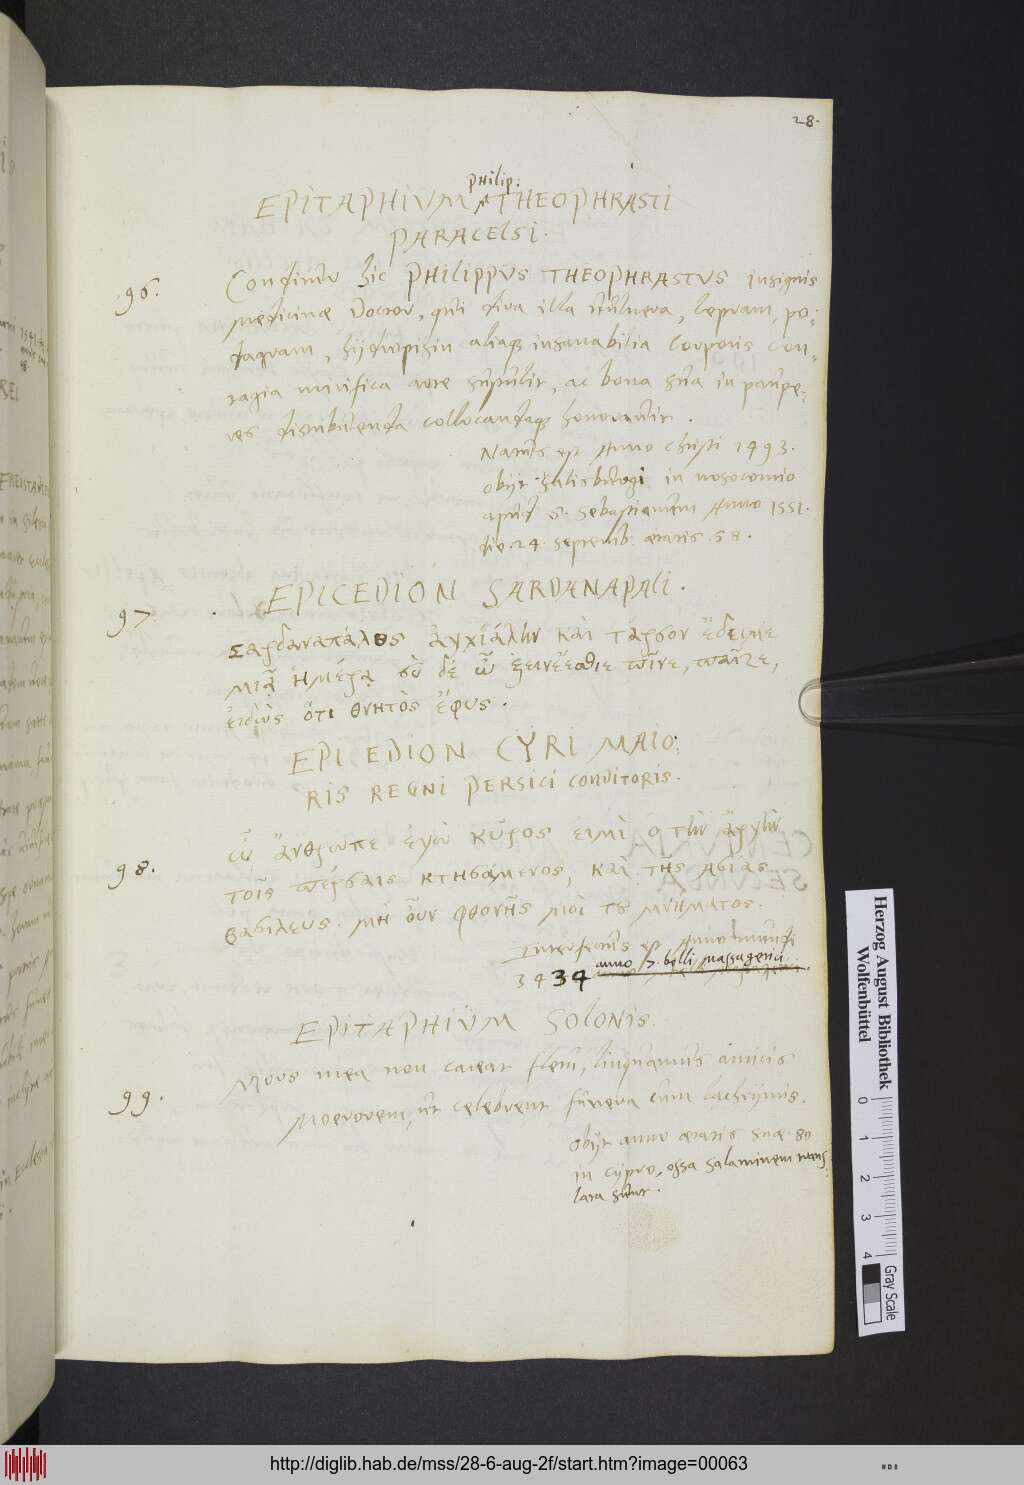 28.
Philip.
EPITAPHIVM THEOPHRASTI
PARACELSI.
96. Conditur hic PHILIPPVS THEOPHRASTVS insignis
medicinæ Doctor, qui dira illa vulnera, lepram, po:
dagram, hydropisin aliaque insanabilia corporis con:
tagia mirifica arte sustulit, ac bona sua in paupe:
res distribuenda collocandaque honoravit.
Natus est Anno Christi 1493.
obijt Salisburgi in nosocomio
apud S. Sebastianum Anno 1551.
die 24 septemb. ætatis 58.
97. EPICEDION SARDANAPALI.
Σαρδαναπάλος ἀγχιάλην καὶ τάρσον ἔδειμε
μιᾷ ἡμέρᾳ σὺ δέ ὦ ξεῖνε ἔσθιε πῖνε, παῖζε,
εἰδὼς ὅτι θνητὸς ἔφυς.
EPI EDION CYRI MAIO:
RIS REGNI PERSICI CONDITORIS.
98. ὦ ἄνθρωπε ἐγὼ κῦρος εἰμὶ ὁ τὴν ἀρχὴν
τοῖς πέρσαις κτησάμενος, καὶ τῆς ἀσίας
βασιλεύς. μὴ οὖν φθονῇς μοὶ τοῦ μνήματος.
Interfectus est Anno mundi
3434 anno 7. belli massagetici
EPITAPHIVM SOLONIS.
99. Mors mea non careat fletu, linquamus amicis
Moerorem, ut celebrent funera cum lachrymis.
obijt anno ætatis suæ 80
in cypro, ossa Salaminem trans:
lata sunt.
Herzog August Bibliothek
Wolfenbüttel
0 1 2 3 4
Gray Scale
http://diglib.hab.de/mss/28-6-aug-2f/start.htm?image=00063